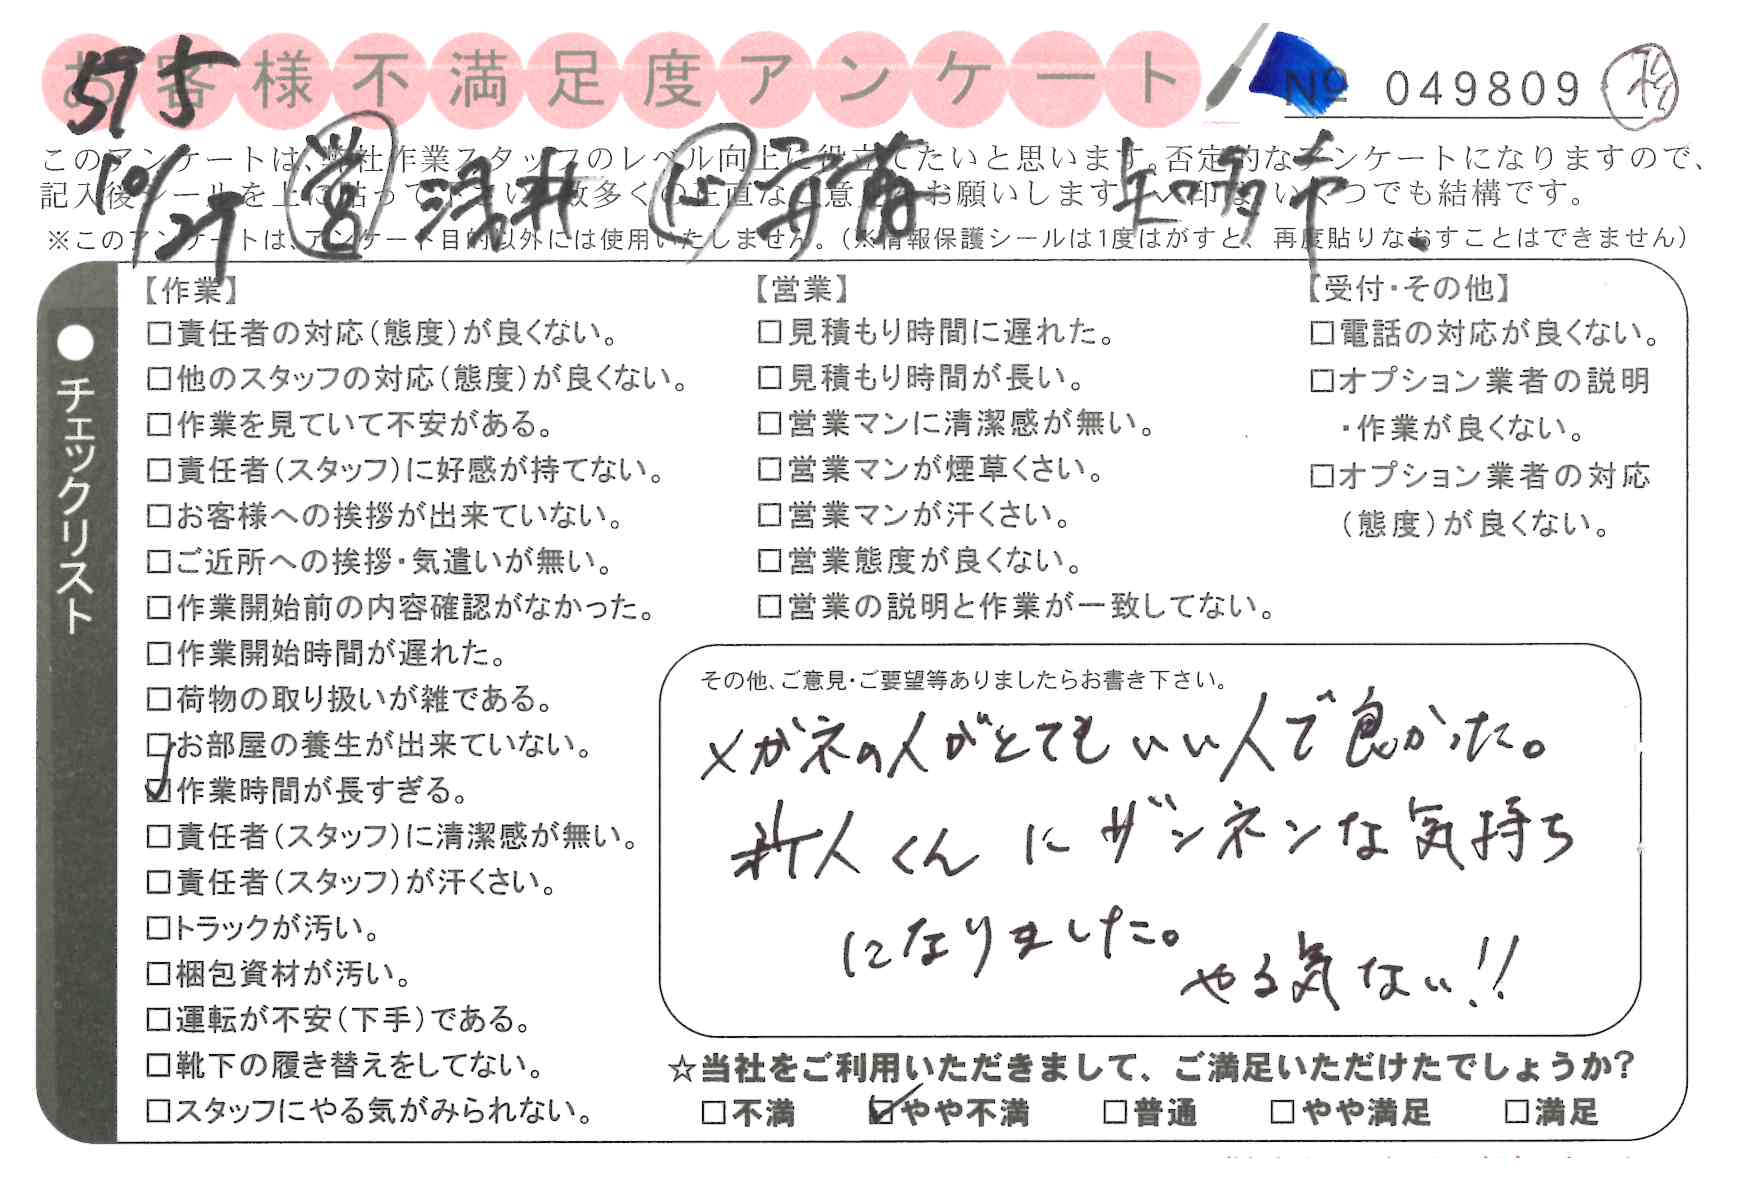 お客様不満足度アンケート
№ 049809
10/27 営 浅井
このアンケートは、弊社作業スタッフのレベル向上に役立てたいと思います。否定的なアンケートになりますので、
記入後シールを上に貼って下さい。数多くの正直なご意見をお願いします。
※このアンケートは、アンケート目的以外には使用いたしません。(※情報保護シールは1度はがすと、再度貼りなおすことはできません)
●チェックリスト
【作業】
□責任者の対応(態度)が良くない。
□他のスタッフの対応(態度)が良くない。
□作業を見ていて不安がある。
□責任者(スタッフ)に好感が持てない。
□お客様への挨拶が出来ていない。
□ご近所への挨拶・気遣いが無い。
□作業開始前の内容確認がなかった。
□作業開始時間が遅れた。
□荷物の取り扱いが雑である。
□お部屋の養生が出来ていない。
☑作業時間が長すぎる。
□責任者(スタッフ)に清潔感が無い。
□責任者(スタッフ)が汗くさい。
□トラックが汚い。
□梱包資材が汚い。
□運転が不安(下手)である。
□靴下の履き替えをしてない。
□スタッフにやる気がみられない。
【営業】
□見積もり時間に遅れた。
□見積もり時間が長い。
□営業マンに清潔感が無い。
□営業マンが煙草くさい。
□営業マンが汗くさい。
□営業態度が良くない。
□営業の説明と作業が一致してない。
【受付・その他】
□電話の対応が良くない。
□オプション業者の説明
・作業が良くない。
□オプション業者の対応
(態度)が良くない。
その他、ご意見・ご要望等ありましたらお書き下さい。
メガネの人がとてもいい人で良かった。
新人くんにザンネンな気持ち
になりました。
やる気ない!!
☆当社をご利用いただきまして、ご満足いただけたでしょうか?
□不満 ☑やや不満 □普通 □やや満足 □満足